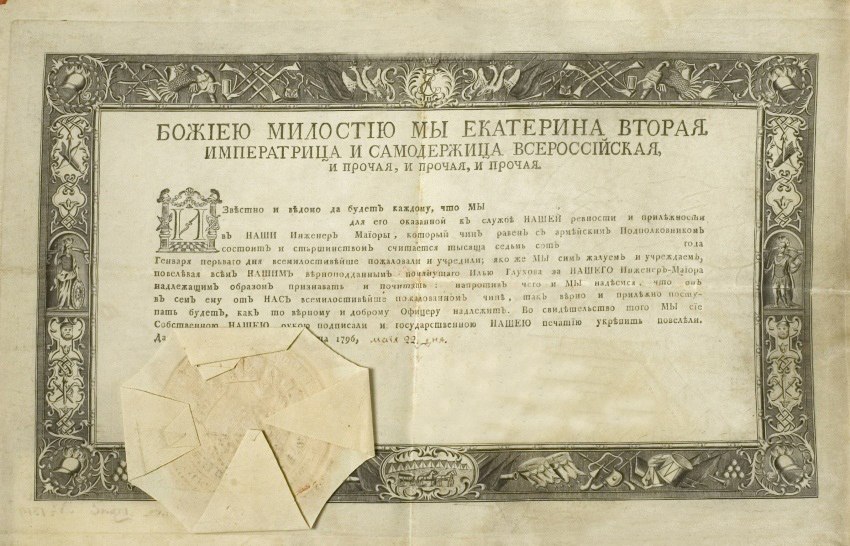 БОЖІЕЮ МИЛОСТІЮ МЫ ЕКАТЕРИНА ВТОРАЯ,
ИМПЕРАТРИЦА И САМОДЕРЖИЦА ВСЕРОССІЙСКАЯ,
И ПРОЧАЯ, И ПРОЧАЯ, И ПРОЧАЯ.
ИЗвѣстно и вѣдомо да будетъ каждому, что МЫ
для его оказанной къ службѣ НАШЕЙ ревности и прилѣжности
въ НАШИ Инженеръ Маіоры, который чинъ равенъ съ армейскимъ Подполковникомъ
состоитъ и старшинствомъ считается тысяща седмь сотъ года
Генваря перьваго дня всемилостивѣйше пожаловали и учредили; яко же МЫ симъ жалуемъ и учреждаемъ,
повелѣвая всѣмъ НАШИМЪ вѣрноподданнымъ помянутаго Илью Глухова за НАШЕГО Инженеръ-Маіора
надлежащимъ образомъ признавать и почитать: напротивъ чего и МЫ надѣемся, что онъ
въ семъ ему отъ НАСЪ всемилостивѣйше пожалованномъ чинѣ, такъ вѣрно и прилѣжно посту-
пать будетъ, какъ то вѣрному и доброму Офицеру надлежитъ. Во свидѣтельство того МЫ сіе
Собственною НАШЕЮ рукою подписали и государственною НАШЕЮ печатію укрѣпить повелѣли.
Да 1796, маія 22 дня.